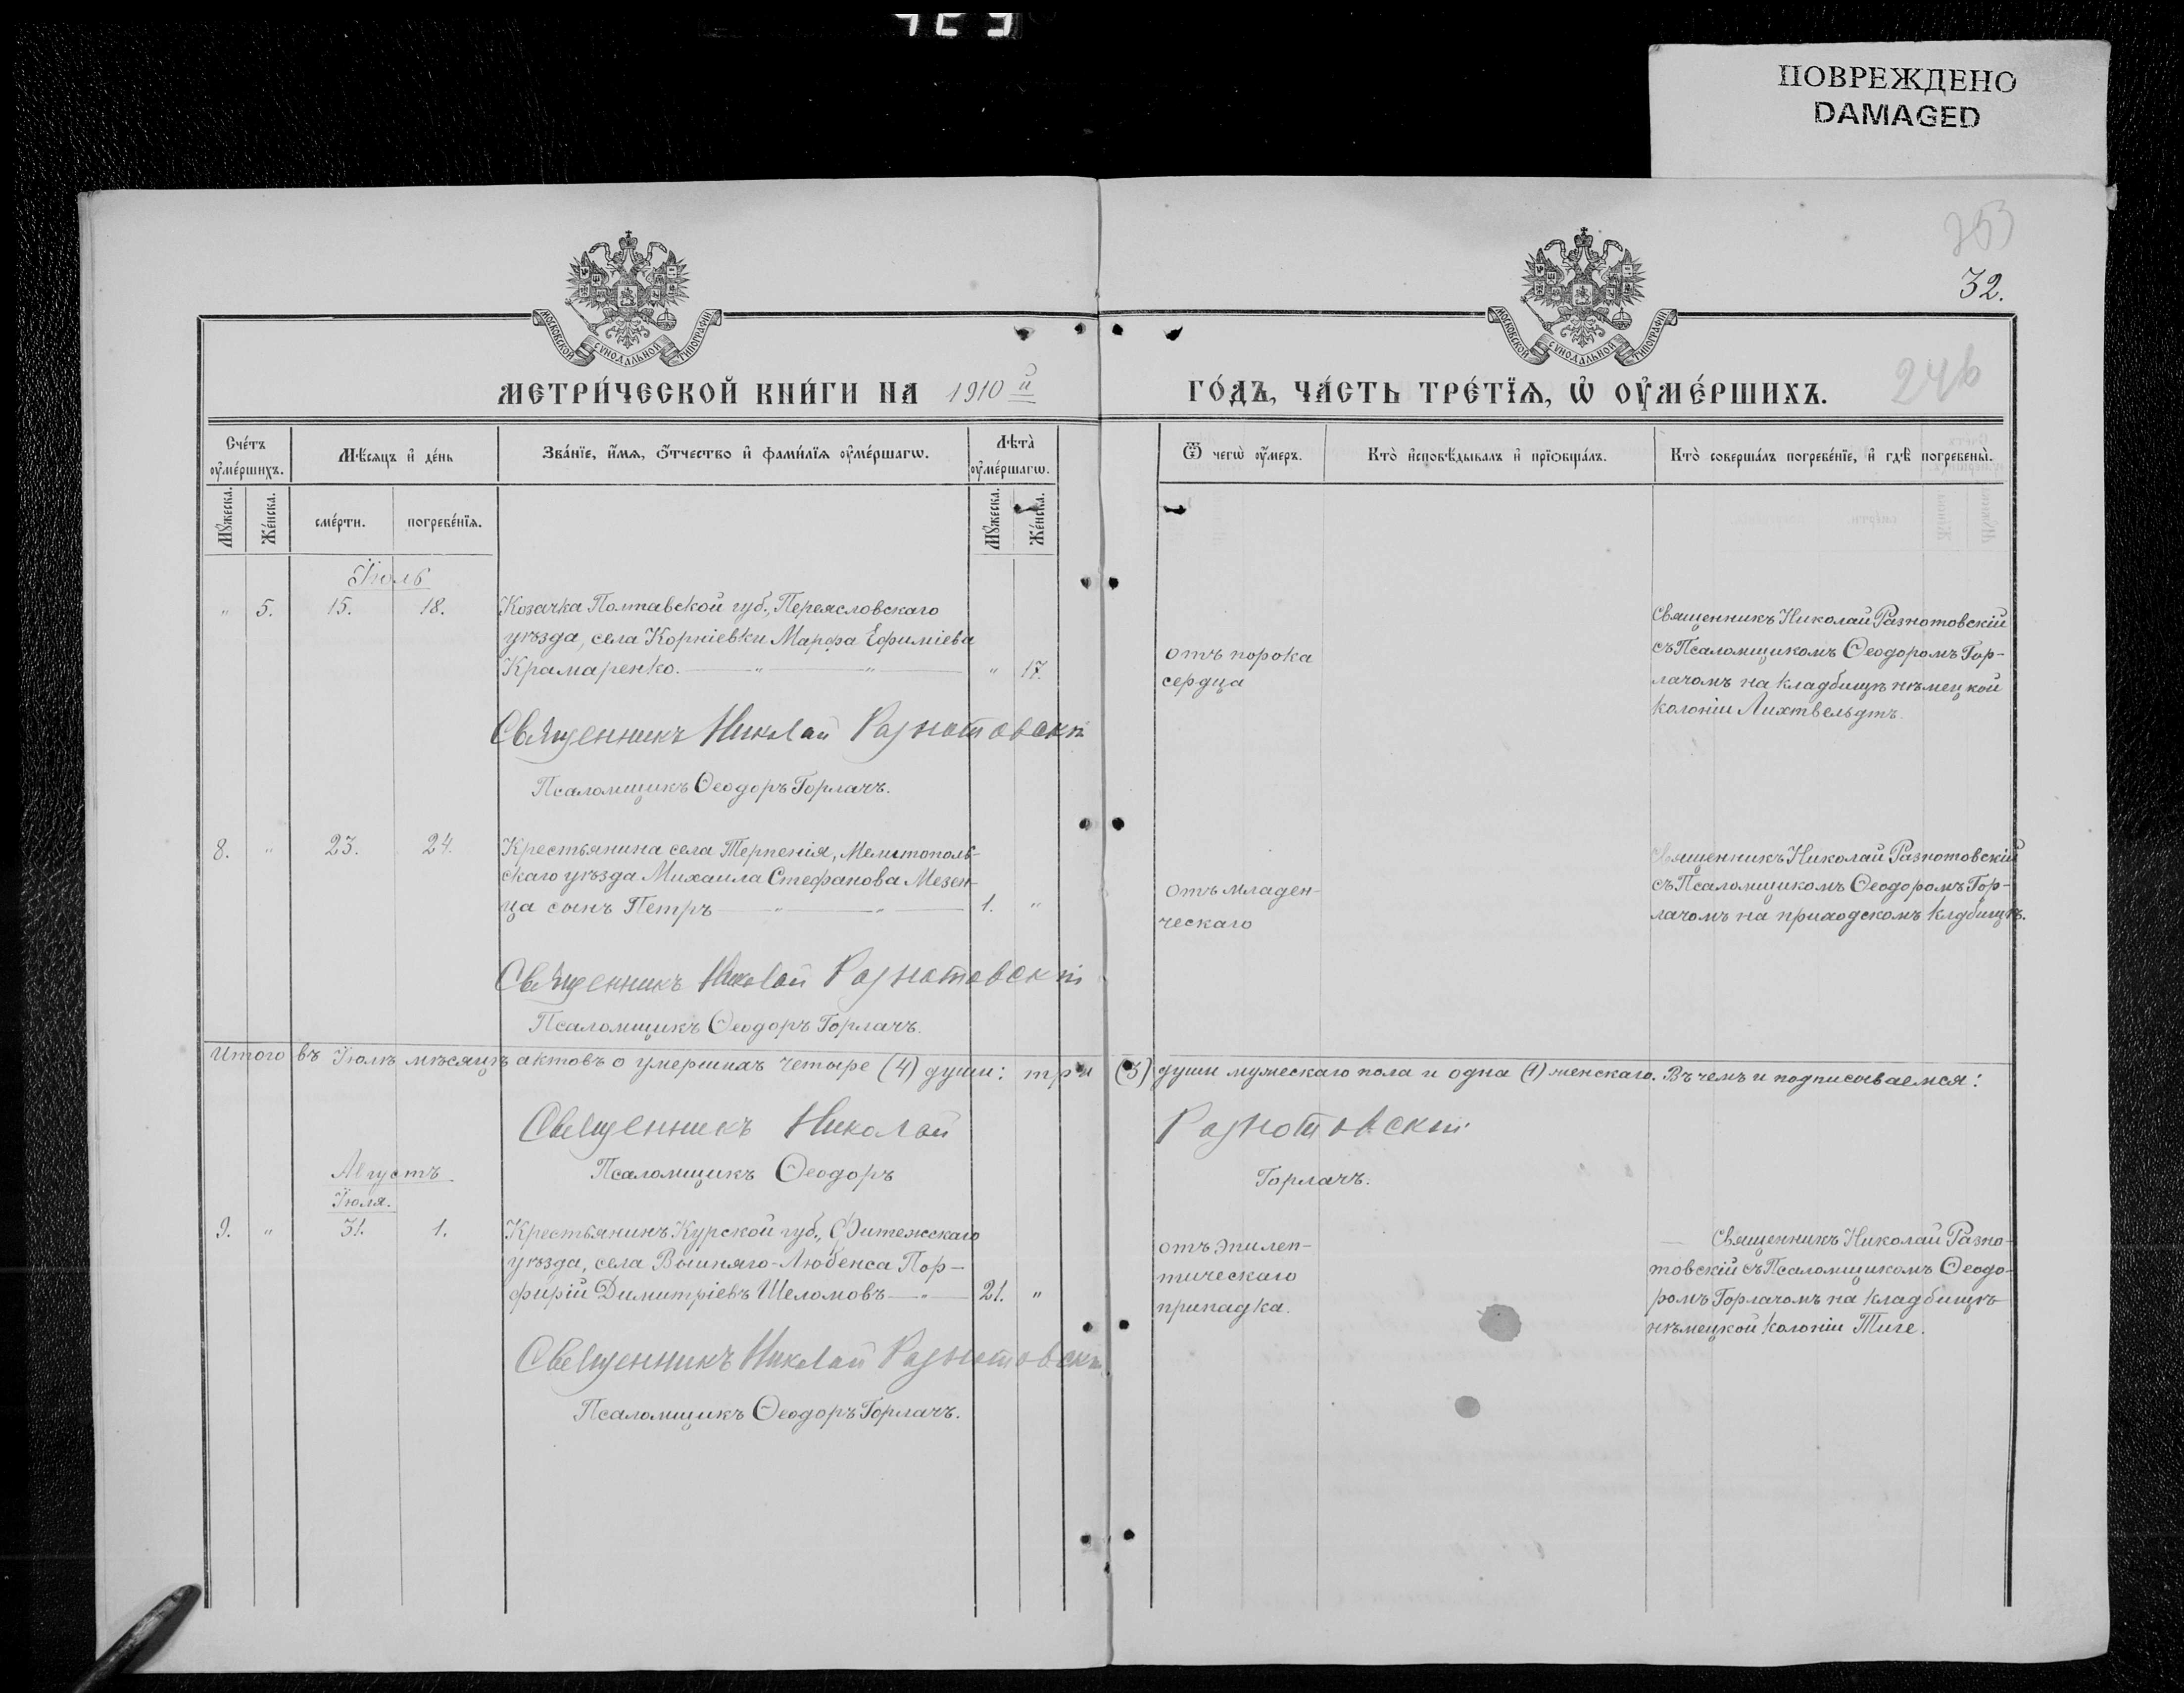 ПОВРЕЖДЕНО
DAMAGED
253
32.
246
МОСКОВСКОЙ СУНОДАЛЬНОЙ ТИПОГРАФІИ
МОСКОВСКОЙ СУНОДАЛЬНОЙ ТИПОГРАФІИ
МЕТРИ́ЧЕСКОЙ КНИ́ГИ НА 1910й ГО́ДЪ, ЧА́СТЬ ТРЕ́ТЇѦ, Ѡ ОУМЕ́РШИХЪ.
Сче́тъ оуме́ршихъ.
Мꙋжеска.
Же́нска.
Мѣ́сяцъ и де́нь
сме́рти.
погребе́нїѧ.
Зва́нїе, и́мѧ, о́тчество и фами́лїѧ оуме́ршагѡ.
Лѣта̀ оуме́ршагѡ.
Мꙋжеска.
Же́нска.
Ѿ чегѡ̀ оу́меръ.
Кто̀ исповѣ́дывалъ и прїѡбща́лъ.
Кто̀ соверша́лъ погребе́нїе, и гдѣ̀ погребены̀.
Іюль
" 5. 15. 18. Козачка Полтавской губ., Переясловскаго
уѣзда, села Корніевки Марфа Ефиміева
Крамаренко. " " " 17.
отъ порока
сердца
Священникъ Николай Разнотовскій
съ Псаломщикомъ Ѳеодоромъ Гор-
лачомъ на кладбищѣ нѣмецкой
колоніи Лихтвельдтъ.
Священникъ Николай Разнотовскій
Псаломщикъ Ѳеодоръ Горлачъ.
8. " 23. 24. Крестьянина села Терпенія, Мелитополь-
скаго уѣзда Михаила Стефанова Мезен-
ца сынъ Петръ " " 1. "
отъ младен-
ческаго
Священникъ Николай Разнотовскій
съ Псаломщикомъ Ѳеодоромъ Гор-
лачомъ на приходскомъ клдбищѣ.
Священникъ Николай Разнотовскій
Псаломщикъ Ѳеодоръ Горлачъ.
Итого въ Іюлѣ мѣсяцѣ актовъ о умершихъ четыре (4) души: три (3) души мужескаго пола и одна (1) женскаго. Въ чемъ и подписываемся:
Священникъ Николай Разнотовскій
Псаломщикъ Ѳеодоръ Горлачъ.
Августъ
Іюля.
9. " 31. 1. Крестьянинъ Курской губ., Фитежскаго
уѣзда, села Вышняго-Любенса Пор-
фирій Димитріевъ Шеломовъ " 21. "
отъ эпилеп-
тическаго
припадка.
Священникъ Николай Разно-
товскій съ Псаломщикомъ Ѳеодо-
ромъ Горлачомъ на кладбищѣ
нѣмецкой колоніи Тиге.
Священникъ Николай Разнотовскій
Псаломщикъ Ѳеодоръ Горлачъ.